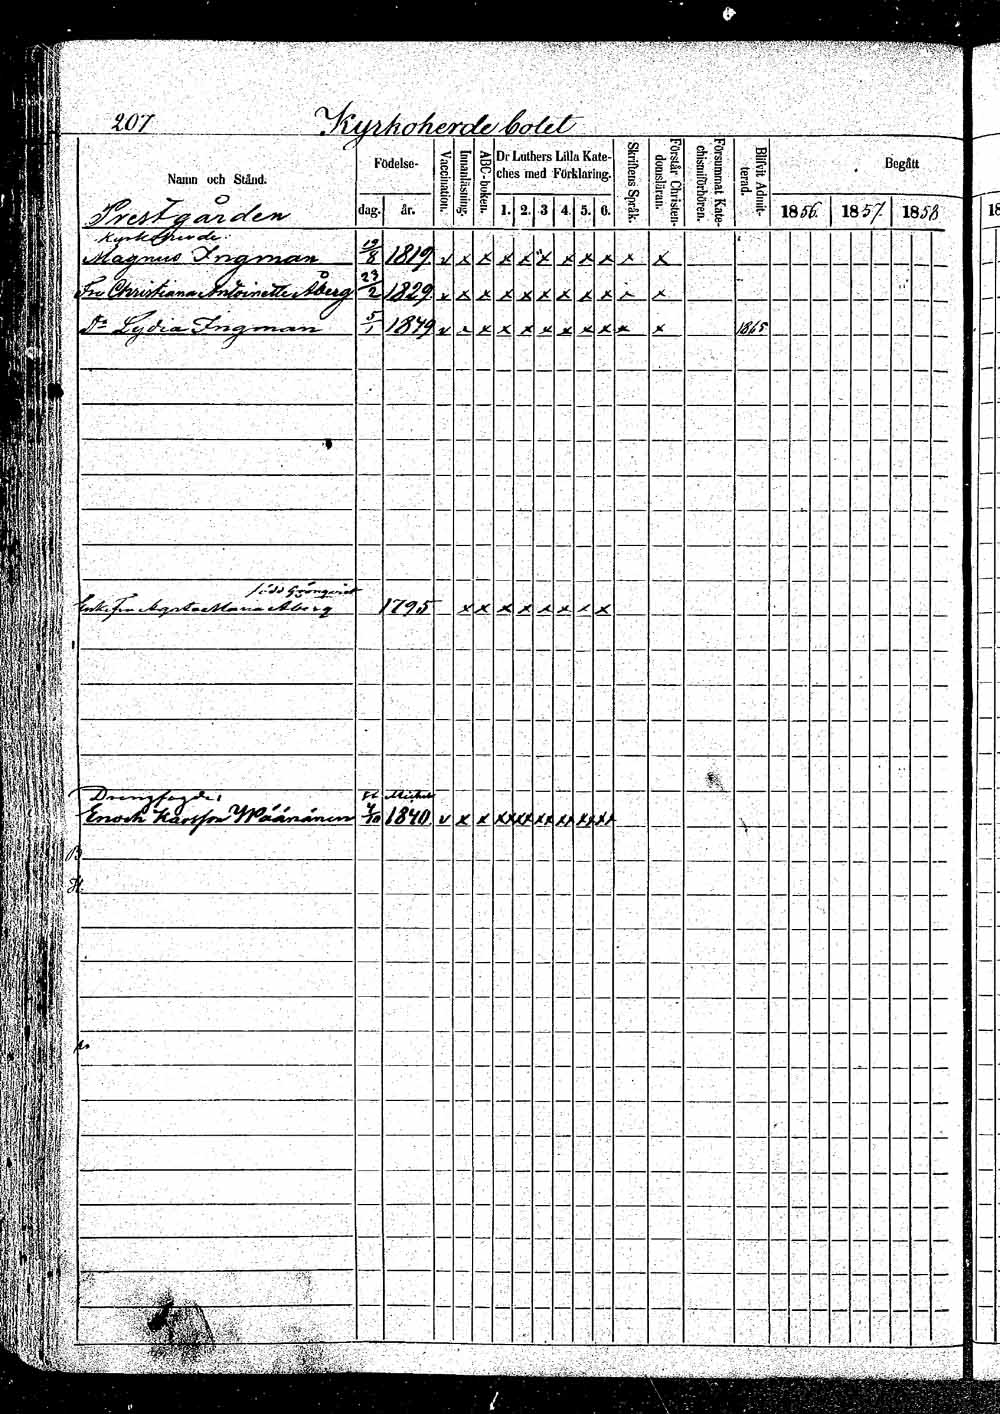 207 Kyrkoherde bolet
Namn och Stånd. Födelse- dag. år. Vaccination. Innanläsning. ABC-boken. Dr Luthers Lilla Kateches med Förklaring. 1. 2. 3 4. 5. 6. Skriftens Språk. Förstår Christendomsläran. Försummat Katechismiförhören. Blifvit Admitterad. Begått 1856. 1857. 1858
Prestgården
Kyrkoherde:
Magnus Ingman 19/8 1819 v x x x x x x x x x x
Fru Christiana Antoinette Åberg 23/2 1829 v x x x x x x x x x x
Dr Lydia Ingman 5/1 1849 v x x x x x x x x x x 1865
född Grönqvist
Enkefru Agata Maria Åberg 1795 x x x x x x x x
Drengfogde:
Enoch Karsson Wäänänen 4/10 1840 v x x xx xx xx xx xx xx
B
H.
18